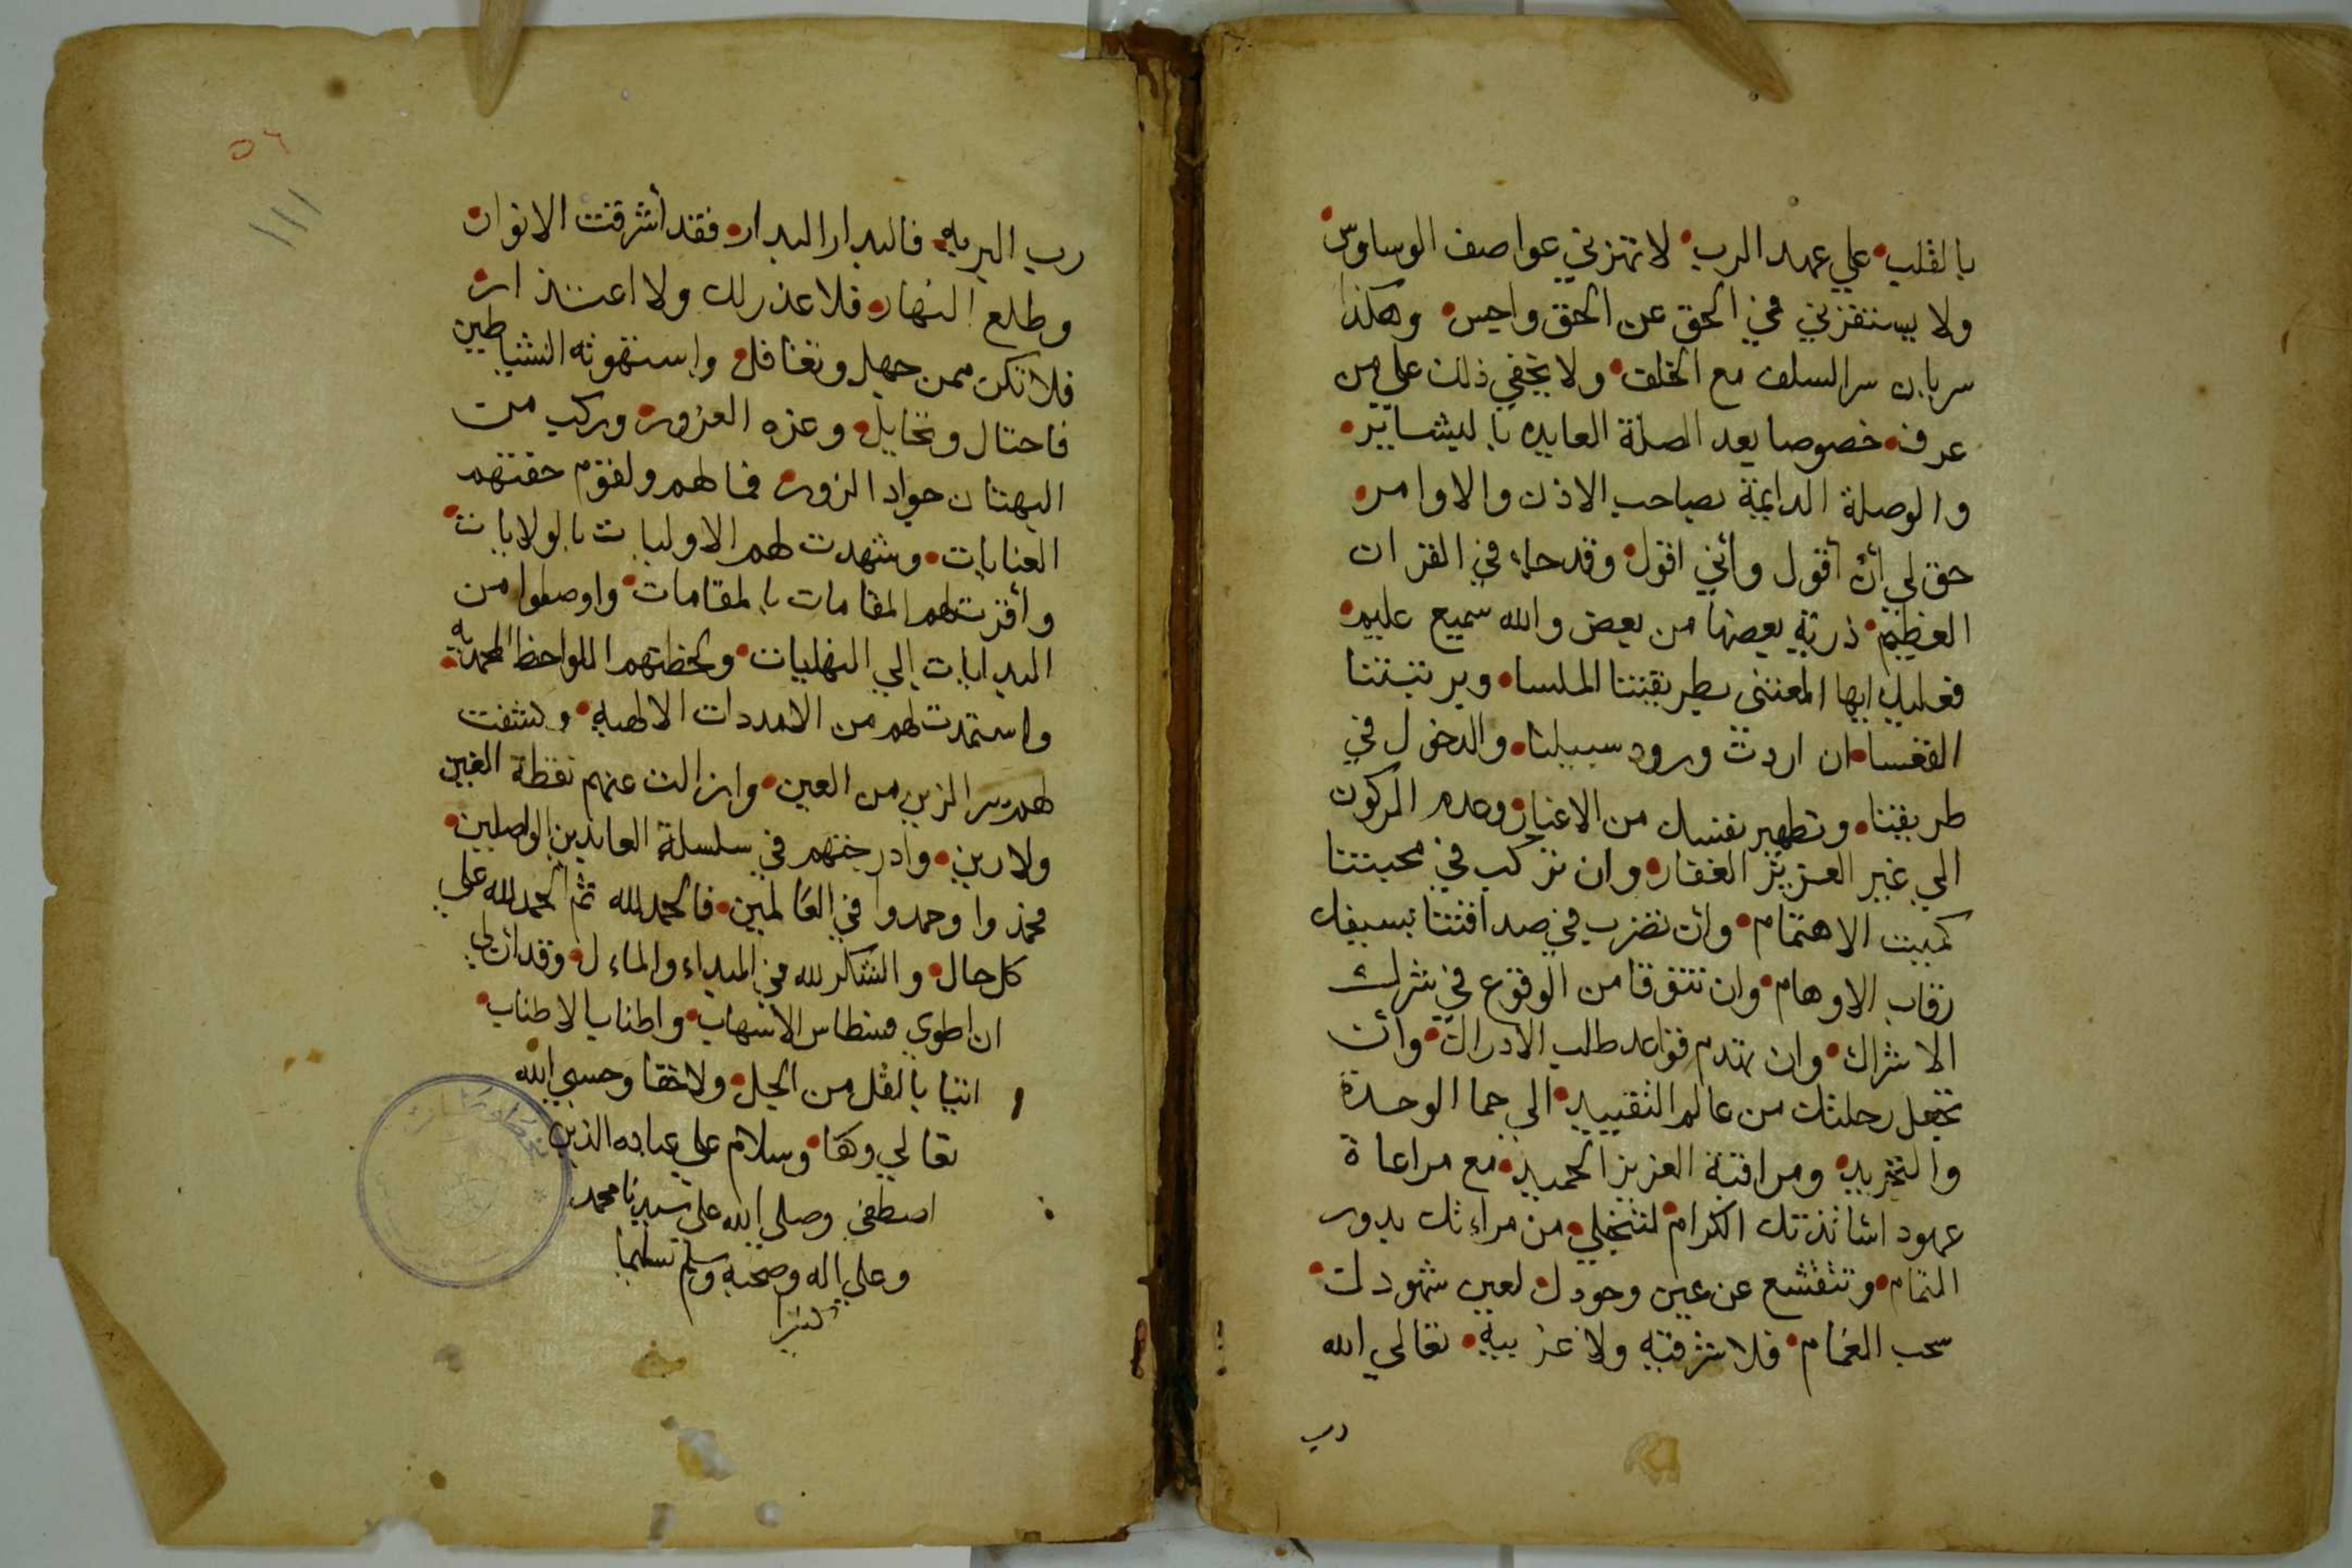 بالقلب علي عهد الرب لا تهزني عواصف الوساوس
ولا يستفزني في الحق عن الحق واجس وهكذا
سريان سر السلف مع الخلف ولا يخفي ذلك علي من
عرف خصوصا بعد الصلة العايده بالبشاير
والوصلة الدايمة بصاحب الاذن والاوامر
حق لي أن أقول وأني اقول وقد جاء في القران
العظيم ذرية بعضها من بعض والله سميع عليم
فعليك ايها المعتني بطريقتنا الملسا وبرتبتنا
القعسا ان اردت ورود سبيلنا والدخول في
طريقنا وتطهير نفسك من الاغيار وعدم الركون
الي غير العزيز الغفار وان تركب في محبتنا
كميت الاهتمام وان تضرب في صداقتنا بسيفك
رقاب الاوهام وان تتوقا من الوقوع في شرك
الاشراك وان تهدم قواعد طلب الادراك وأن
تجعل رحلتك من عالم التقييد الي حما الوحدة
والتجريد ومراقبة العزيز الحميد مع مراعاة
عهود اساتذتك الكرام لتنجلي من مراءتك بدور
التمام وتنقشع عن عين وجودك لعين شهودك
سحب الغمام فلا شرقية ولا غربية تعالي الله
رب
٥٦
١١١
رب البريه فالبدار البدار فقد أشرقت الانوار
وطلع النهار فلا عذر لك ولا اعتذار
فلا تكن ممن جهل وتغافل واستهوته الشياطين
فاحتال وتخايل وغره الغرور وركب من
البهتان جواد الزور فيا لهم ولقوم حفتهم
العنايات وشهدت لهم الاوليات بالولايات
وأقرت لهم المقامات بالمقامات واوصلوا من
البدايات إلي النهايات ولحظتهم اللواحظ المحمدية
واستمدت لهم من الامدادات الالهيه وكشفت
لهم سر الزين من العين وازالت عنهم نقطة الغين
ولا رين وأدرجتهم في سلسلة العابدين الواصلين
محمدوا وحمدوا في العالمين فالحمد لله ثم الحمد لله علي
كل حال والشكر لله في المبداء والماءل وقد ان لي
ان اطوي فسطاس الاسهاب واطناب الاطناب
اتيا بالقل من الجل ولا خفا وحسبي الله
تعالي وكفا وسلام علي عباده الذين
اصطفي وصلي الله علي سيدنا محمد
وعلي اله وصحبه وسلم تسليما
كثيرا